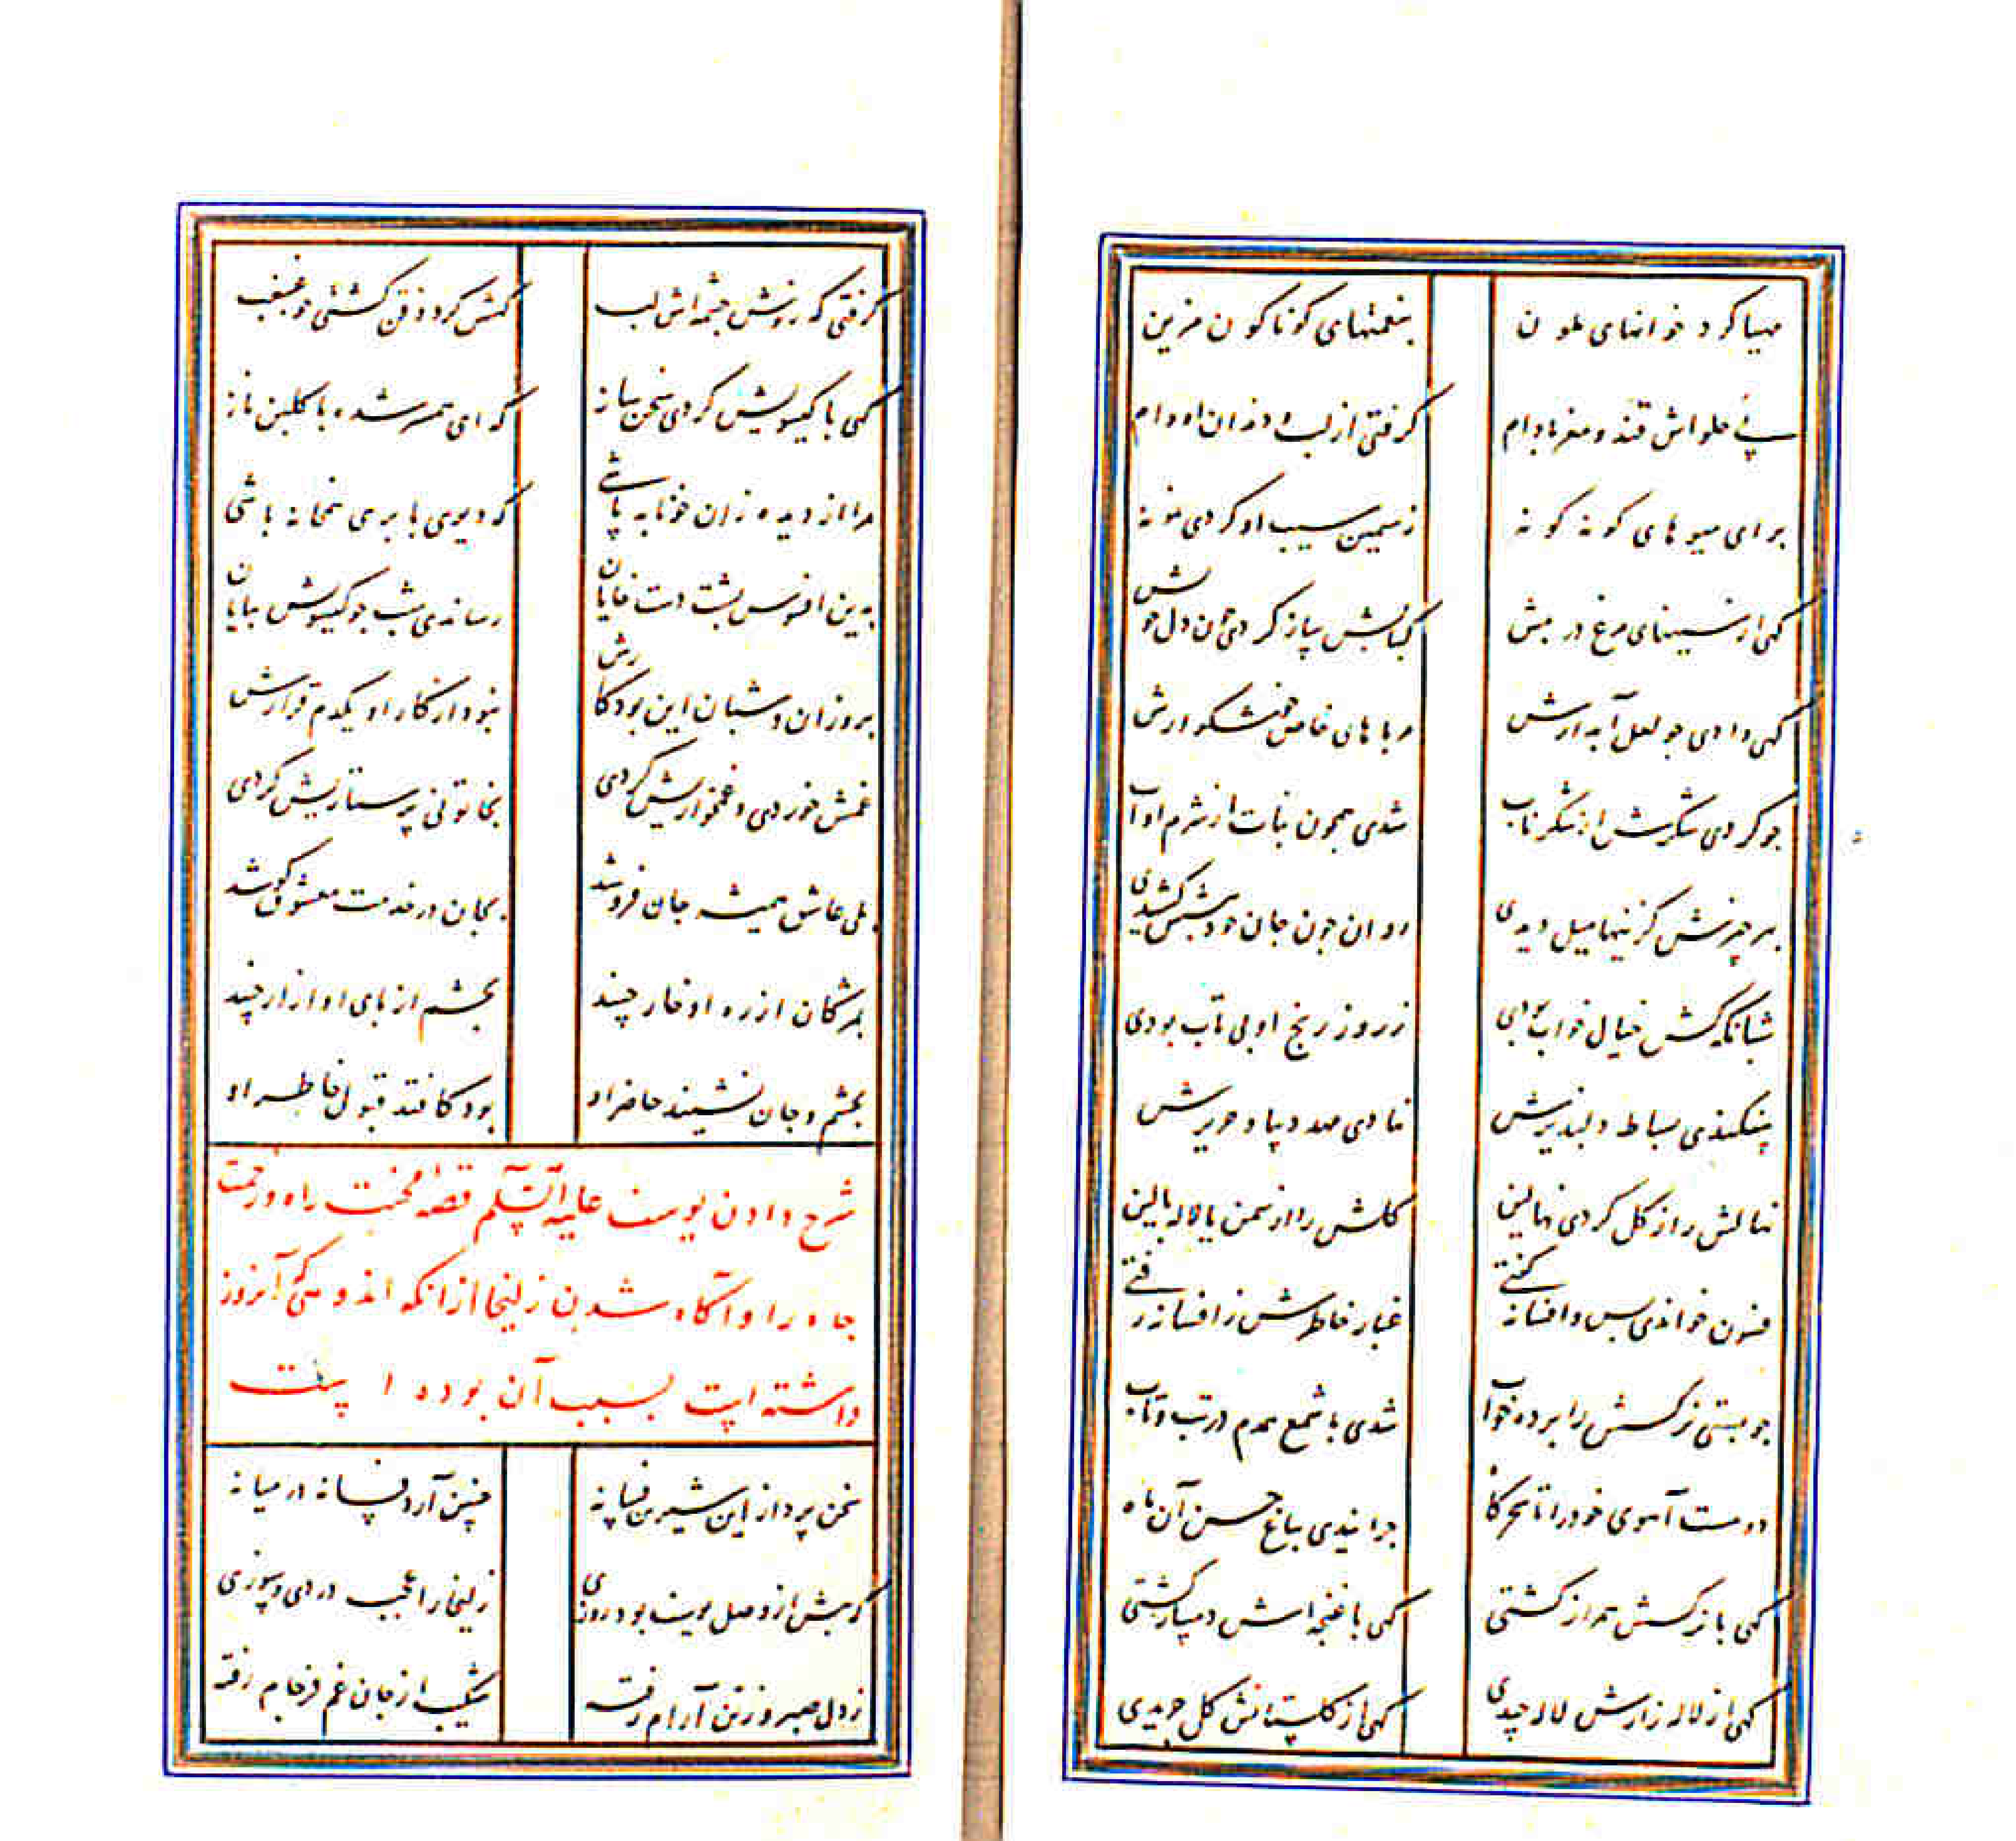 مهیا کرد خوانهای ملون بنعمتهای کوناکون مزین
پی حلواش قند و مغز بادام کرفتی از لب و دندان او وام
برای میوهای کونه کونه ز سیمین سیب او کردی نمونه
کهی از سینهای مرغ در پیش کبابش ساز کردی جون دل خویش
کهی دادی جو لعل آبدارش مرباهای خاص خوشکوارش
جو کردی شکرش از شکر ناب شدی همجون نبات از شرم او آب
بهر جیزش کزینها میل دیدی روان جون جان خود پیشش کشیدی
شبانکه کش خیال خواب بودی ز روز رنج او بی تاب بودی
بیفکندی بساط دلپذیرش نهادی مهد دیبا و حریرش
نهالش را ز کل کردی نهالین کلش را از سمن یا لاله بالین
فسون خواندی بس و افسانه کفتی غبار خاطرش ز افسانه رفتی
جو بستی نرکسش را پرده خواب شدی با شمع همدم در تب و تاب
دو مست آهوی خود را تا سحرکاه جرانیدی بباغ حسن آن ماه
کهی با نرکسش همراز کشتی کهی با غنچه اش دمساز کشتی
کهی از لاله زارش لاله چیدی کهی از کلستانش کل جریدی
کرفتی که ز نوشین چشمه اش لب کهش کرد ذقن کشتی جو غبغب
کهی با کیسویش کردی سخن ساز که ای همسر شده با کلبن ناز
مرا از دیده زان خونابه پاشی که دیوی با پری همخانه باشی
بدین افسوس پشت دست خایان رساندی شب جو کیسویش بپایان
بروزان و شبان این بود کارش نبود از کار او یکدم قرارش
غمش خوردی و غمخواریش کردی بخاتونی پرستاریش کردی
بلی عاشق همیشه جان فروشد بجان در خدمت معشوق کوشد
بمژکان از ره او خار چیند بچشم از پای او آزار چیند
بچشم و جان نشیند حاضر او بود کافتد قبول خاطر او
شرح دادن یوسف علیه السلم قصه محنت راه و زحمت
چاه را و آکاه شدن زلیخا از انکه اندوهی که آنروز
داشته است بسبب آن بوده است
سخن پرداز این شیرین فسانه جنین آرد فسانه در میانه
که پیش از وصل یوسف بود روزی زلیخا را عجب دردی و سوزی
ز دل صبر و ز تن آرام رفته شکیب از جان غم فرجام رفته